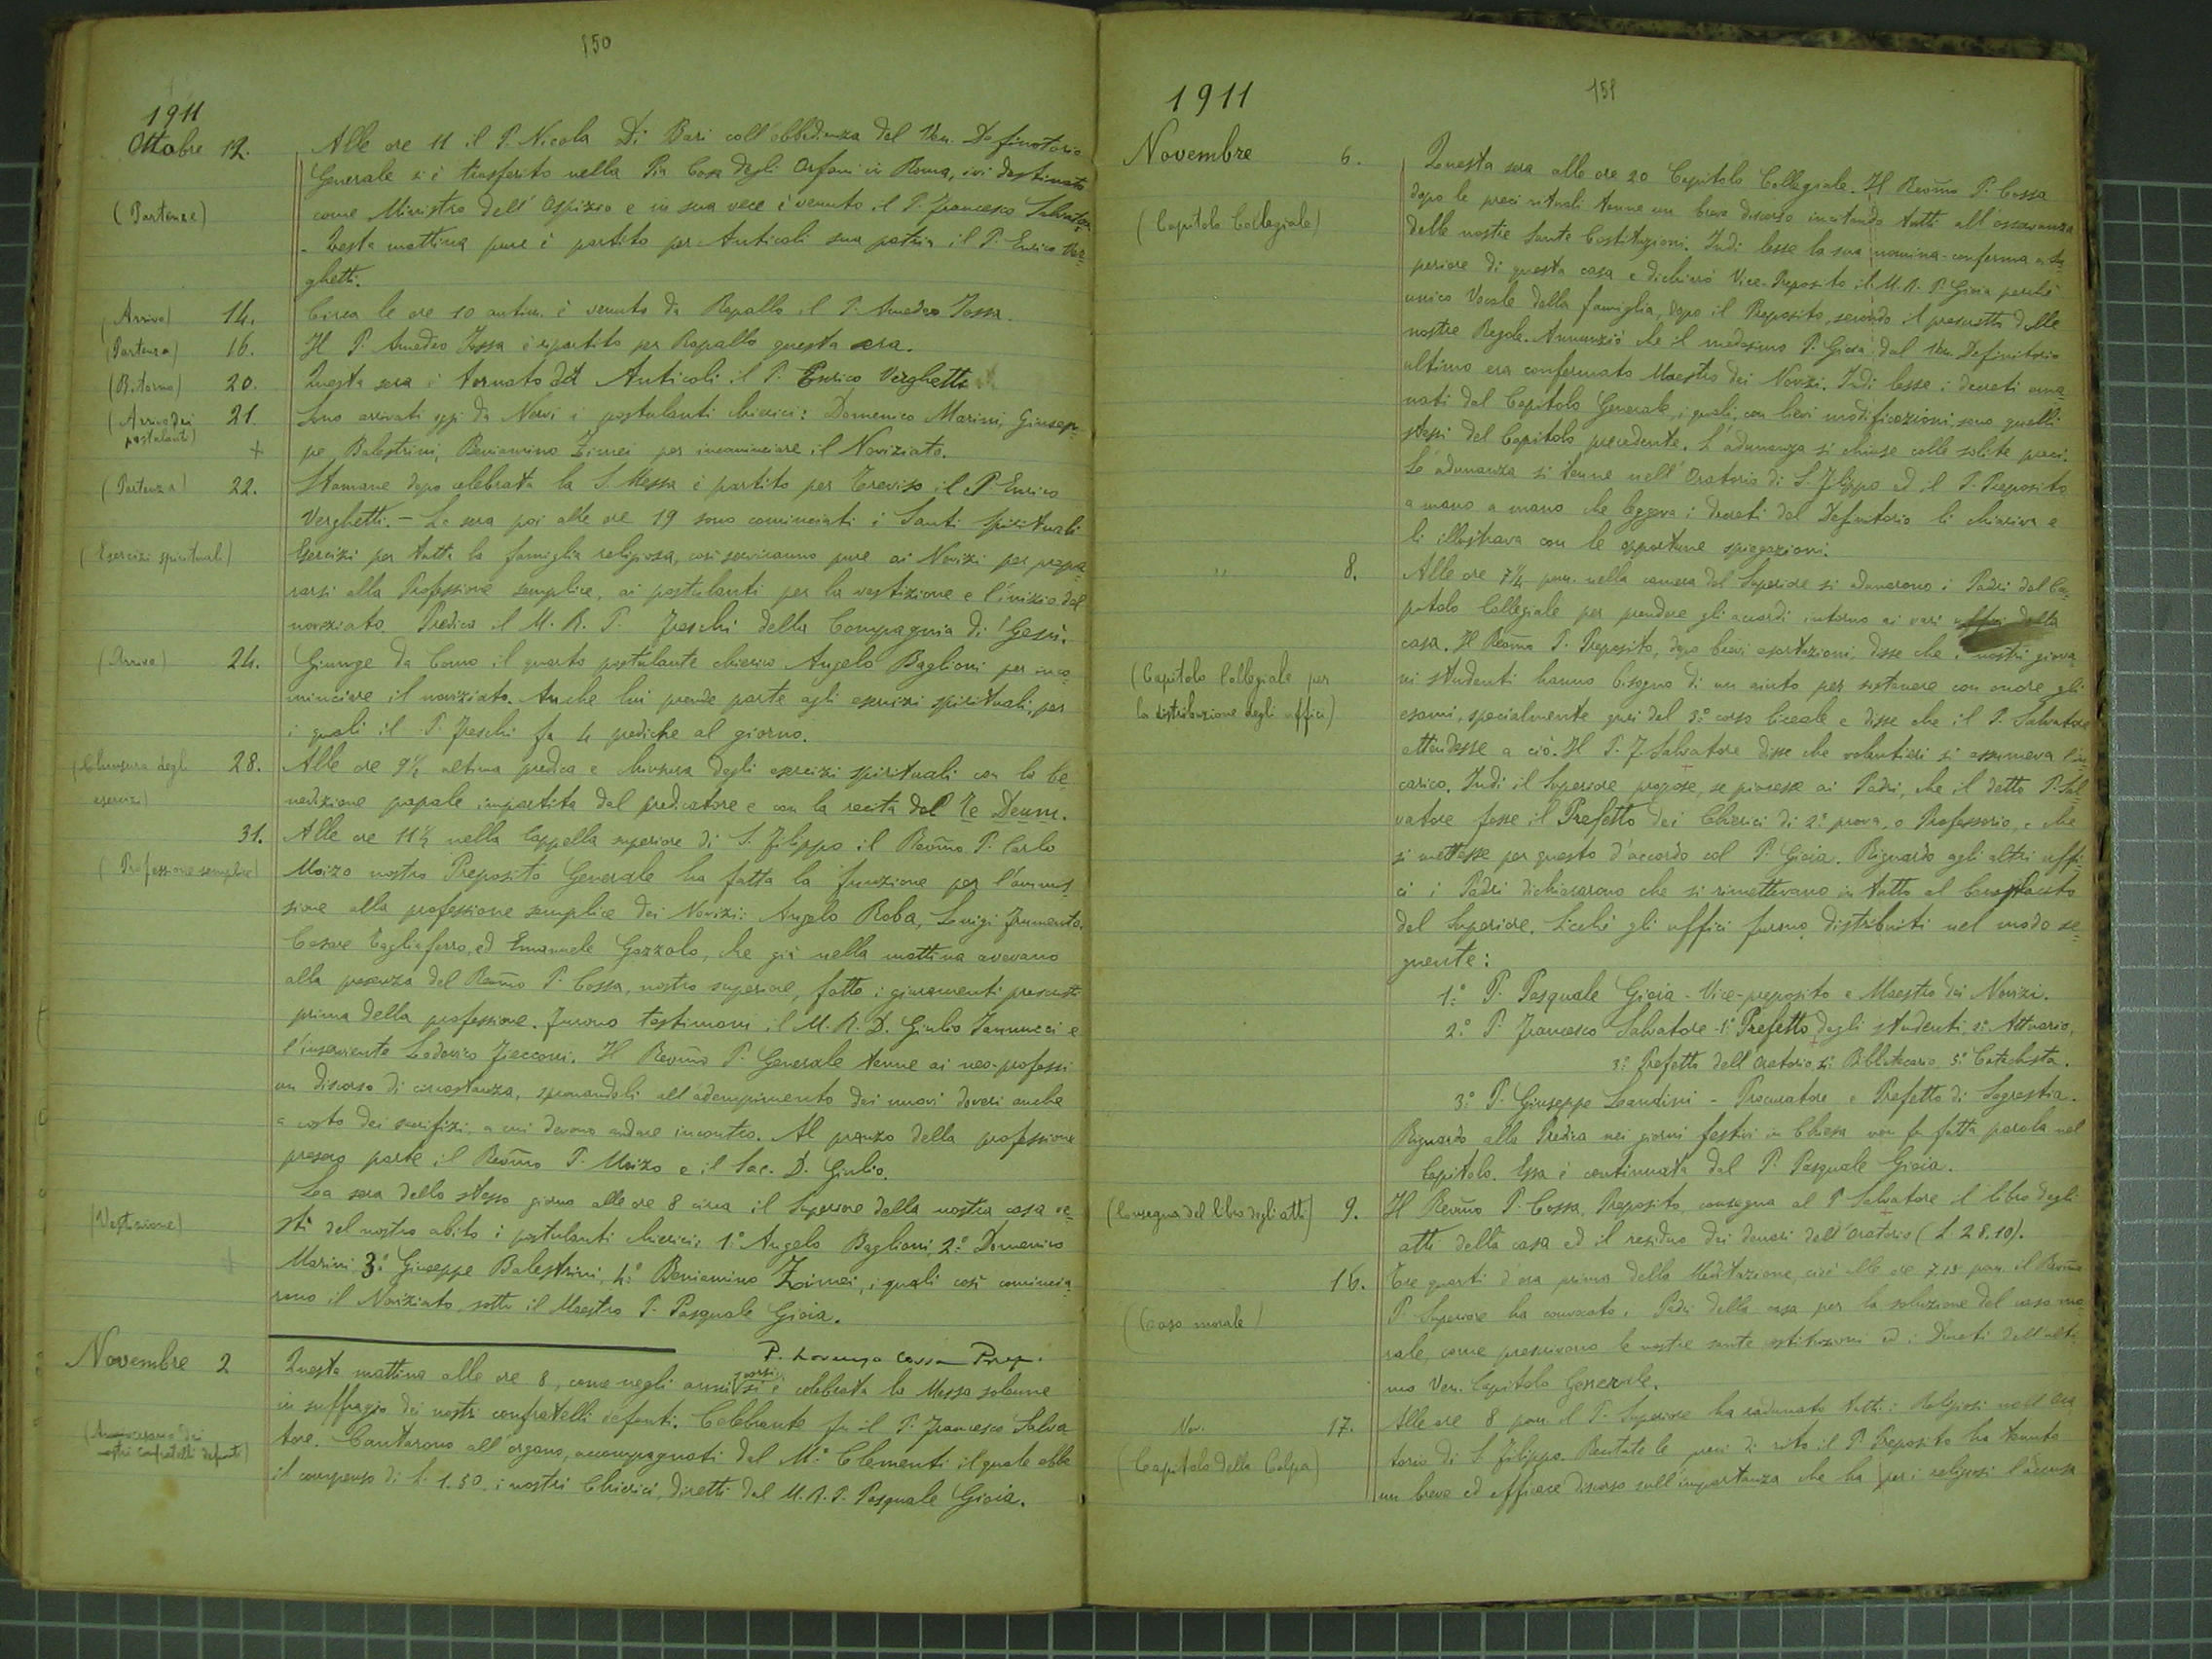 150
1911
Ottobre 12. Alle ore 11 il P. Nicola Di Bari coll'obbedienza del Ven. Definitorio
Generale si è trasferito nella Pia Casa degli Orfani in Roma, ivi destinato
(Partenze) come Ministro dell'Ospizio e in sua vece è venuto il P. Francesco Salvatore
- Questa mattina pure è partito per Anticoli sua patria il P. Enrico Ver=
ghetti.
(Arrivo) 14. Circa le ore 10 antim. è venuto da Rapallo il P. Amedeo Iossa.
(Partenza) 16. Il P. Amedeo Iossa è ripartito per Rapallo questa sera.
(Ritorno) 20. Questa sera è tornato da Anticoli il P. Enrico Verghetti
(Arrivo dei postulanti) 21. Sono arrivati oggi da Nervi i postulanti chierici: Domenico Marini, Giusep=
+ pe Balestrini, Beniamino Zimei per incominciare il Noviziato.
(Partenza) 22. Stamane dopo celebrata la S. Messa è partito per Treviso il P. Enrico
Verghetti. - La sera poi alle ore 19 sono cominciati i Santi Spirituali
(Esercizi spirituali) Esercizi per tutta la famiglia religiosa, così serviranno pure ai Novizi per prepa=
rarsi alla Professione semplice, ai postulanti per la vestizione e l'inizio del
noviziato. Predica il M. R. P. Freschi della Compagnia di Gesù.
(Arrivo) 24. Giunge da Como il quarto postulante chierico Angelo Baglioni per inco=
minciare il noviziato. Anche lui prende parte agli esercizi spirituali, per
i quali il P. Freschi fa 4 prediche al giorno.
(Chiusura degli esercizi) 28. Alle ore 9½ ultima predica e chiusura degli esercizi spirituali con la be=
nedizione papale impartita dal predicatore e con la recita del Te Deum.
31. Alle ore 11½ nella Cappella superiore di S. Filippo il Rev̄mo P. Carlo
(Professione semplice) Moizo nostro Preposito Generale ha fatta la funzione per l'ammis=
sione alla professione semplice dei Novizi: Angelo Roba, Luigi Frumento,
Cesare Tagliaferro, ed Emanuele Gazzolo, che già nella mattina avevano
alla presenza del Rev̄mo P. Cossa, nostro superiore, fatto i giuramenti prescritti
prima della professione. Furono testimoni il M. R. D. Giulio Iannucci e
l'inserviente Lodovico Ziecconi. Il Rev̄mo P. Generale tenne ai neo-professi
un discorso di circostanza, spronandoli all'adempimento dei nuovi doveri anche
a costo dei sacrifizi, a cui devono andare incontro. Al pranzo della professione
presero parte il Rev̄mo P. Moizo e il Sac. D. Giulio.
La sera dello stesso giorno alle ore 8 circa il Superiore della nostra casa ve=
(Vestizione) stì del nostro abito i postulanti chierici: 1.° Angelo Baglioni, 2.° Domenico
+ Marini 3.° Giuseppe Balestrini, 4.° Beniamino Zimei, i quali così comincia=
rono il Noviziato sotto il Maestro P. Pasquale Gioia.
P. Lorenzo Cossa Prep.
Novembre 2 Questa mattina alle ore 8, come negli anni scorsi si è celebrata la Messa solenne
in suffragio dei nostri confratelli defunti. Celebrante fu il P. Francesco Salva
(Anniversario dei nostri confratelli defunti) tore. Cantarono all'organo, accompagnati dal M.° Clementi il quale ebbe
il compenso di L. 1.50, i nostri Chierici, diretti dal M. R. P. Pasquale Gioia.
151
1911
Novembre 6. Questa sera alle ore 20 Capitolo Collegiale. Il Rev̄mo P. Cossa
dopo le preci rituali tenne un breve discorso incitando tutti all'osservanza
(Capitolo Collegiale) delle nostre Sante Costituzioni. Indi lesse la sua nomina-conferma a Su=
periore di questa casa e dichiarò Vice-Preposito il M. R. P. Gioia perchè
unico Vocale della famiglia, dopo il Preposito, secondo il prescritto delle
nostre Regole. Annunziò che il medesimo P. Gioia dal Ven. Definitorio
ultimo era confermato Maestro dei Novizi. Indi lesse i decreti ema=
nati dal Capitolo Generale, i quali, con lievi modificazioni, sono quelli
stessi del Capitolo precedente. L'adunanza si chiuse colle solite preci.
L'adunanza si tenne nell'Oratorio di S. Filippo ed il P. Preposito
a mano a mano che leggeva i decreti del Definitorio li chiariva e
li illustrava con le opportune spiegazioni.
" 8. Alle ore 7¼ pom. nella camera del Superiore si adunarono i Padri del Ca=
pitolo Collegiale per prendere gli accordi intorno ai vari uffici della
casa. Il Rev̄mo P. Preposito, dopo brevi esortazioni, disse che i nostri giova
(Capitolo Collegiale per ni studenti hanno bisogno di un aiuto per sostenere con onore gli
la distribuzione degli uffici) esami, specialmente quei del 3.° corso liceale e disse che il P. Salvatore
attendesse a ciò. Il P. F. Salvatore disse che volentieri si assumeva l'in=
carico. Indi il Superiore propose, se piacesse ai Padri, che il detto P. Sal=
vatore fosse il Prefetto dei Chierici di 2.ª prova, o Professorio, e che
si mettesse per questo d'accordo col P. Gioia. Riguardo agli altri uffi=
ci i Padri dichiararono che si rimettevano in tutto al beneplacito
del Superiore. Sicchè gli uffici furono distribuiti nel modo se=
guente:
1.° P. Pasquale Gioia - Vice-preposito e Maestro dei Novizi.
2.° P. Francesco Salvatore - 1.° Prefetto degli studenti, 2.° Attuario,
3.° Prefetto dell'Oratorio, 4.° Bibliotecario, 5.° Catechista.
3.° P. Giuseppe Landini - Procuratore e Prefetto di Sagrestia.
Riguardo alla Predica nei giorni festivi in Chiesa non fu fatta parola nel
Capitolo. Essa è continuata dal P. Pasquale Gioia.
(Consegna del libro degli atti) 9. Il Rev̄mo P. Cossa, Preposito, consegna al P. Salvatore il libro degli
atti della casa ed il residuo dei denari dell'Oratorio (L. 28.10).
16. Tre quarti d'ora prima della Meditazione, cioè alle ore 7.15 pom. il Rev̄mo
(Caso morale) P. Superiore ha convocato i Padri della casa per la soluzione del caso mo=
rale, come prescrivono le nostre sante costituzioni ed i Decreti dell'ulti
mo Ven. Capitolo Generale.
Nov. 17. Alle ore 8 pom. il P. Superiore ha radunato tutti i Religiosi nell'Ora
(Capitolo della Colpa) torio di S. Filippo. Recitate le preci di rito il P. Preposito ha tenuto
un breve ed efficace discorso sull'importanza che ha per i religiosi l'accusa